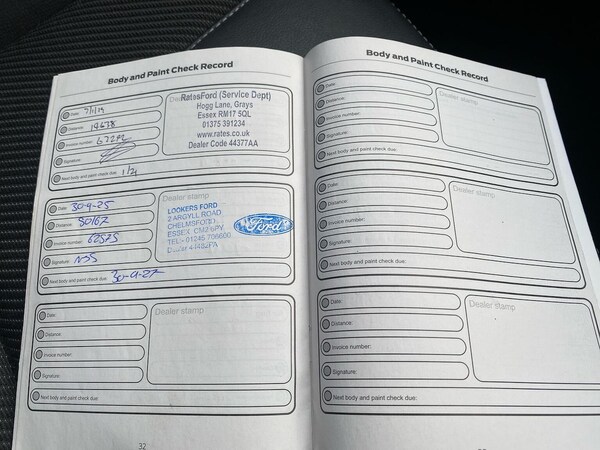 Body and Paint Check Record
Date: 7/1/19
Distance: 19678
Invoice number:
Signature:
Next body and paint check due: 1/21
RatesFord (Service Dept)
Hogg Lane, Grays
Essex RM17 5QL
01375 391234
www.rates.co.uk
Dealer Code 44377AA
Date: 30-4-25
Distance: 80167
Invoice number: 62575
Signature:
Next body and paint check due: 30-4-27
Dealer stamp
LOOKERS FORD
2 ARGYLL ROAD
CHELMSFORD
ESSEX CM2 6PY
TEL: 01245
Ford
Date:
Distance:
Invoice number:
Signature:
Next body and paint check due:
Dealer stamp
32
Body and Paint Check Record
Date:
Distance:
Invoice number:
Signature:
Next body and paint check due:
Dealer stamp
Date:
Distance:
Invoice number:
Signature:
Next body and paint check due:
Dealer stamp
Date:
Distance:
Invoice number:
Signature:
Next body and paint check due:
Dealer stamp